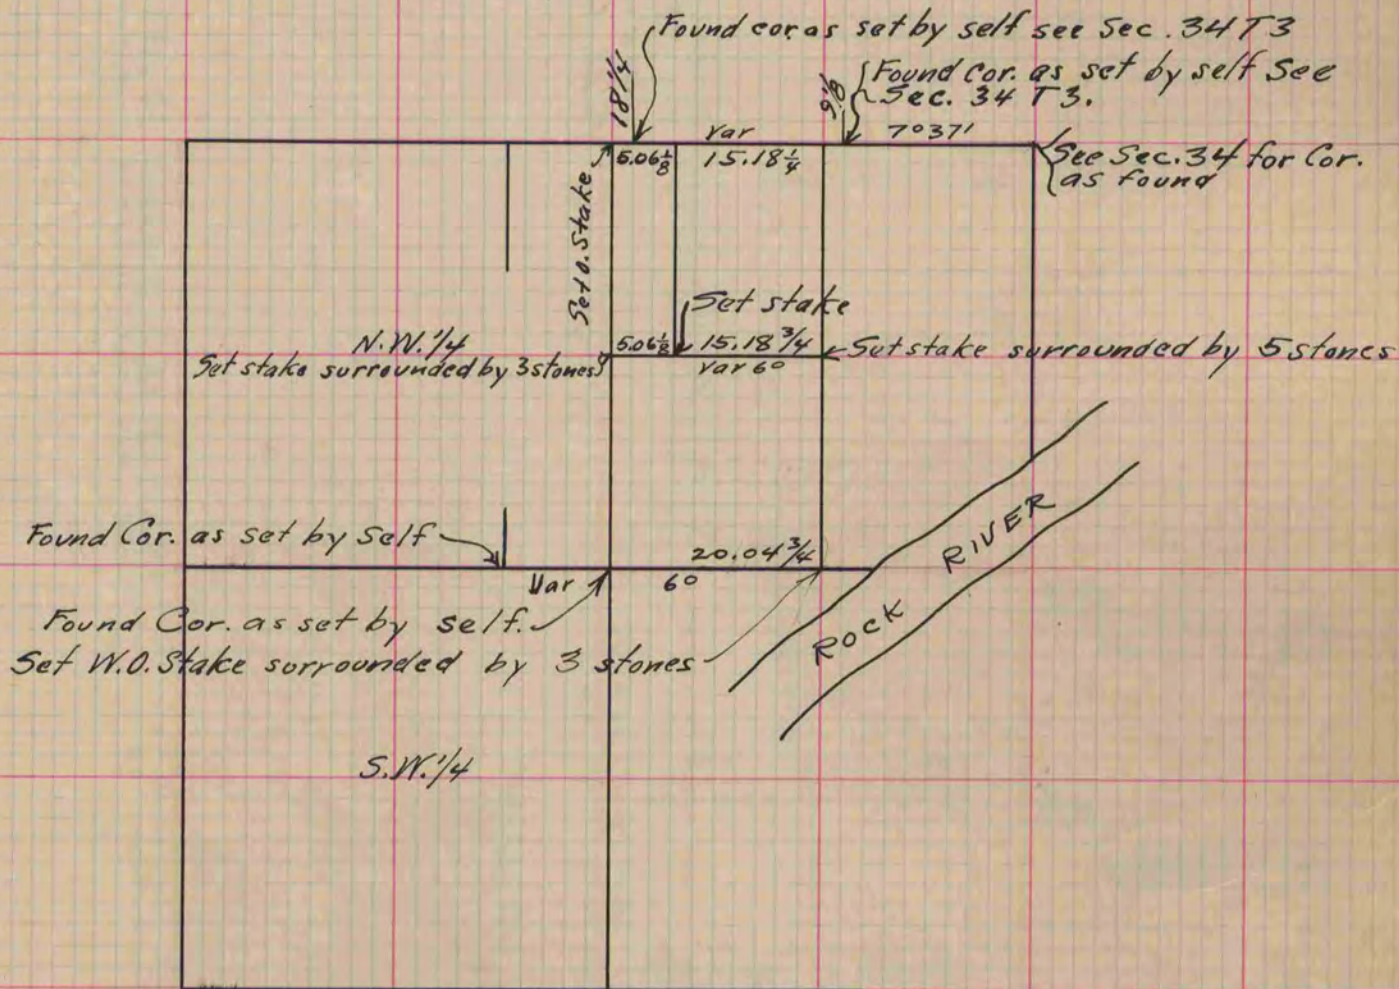 Found cor. as set by self see Sec. 34 T3
18 1/4
Found Cor. as set by self See
Sec. 34 T3.
9 1/8
Var
7°37'
5.06 1/8
15.18 1/4
See Sec. 34 for Cor.
as found
Set O. Stake
Set stake
N.W. 1/4
5.06 1/8
15.18 3/4
Set stake surrounded by 5 stones
Set stake surrounded by 3 stones
Var 6°
Found Cor. as set by Self
20.04 3/4
Var
6°
ROCK RIVER
Found Cor. as set by self.
Set W.O. Stake surrounded by 3 stones
S.W. 1/4